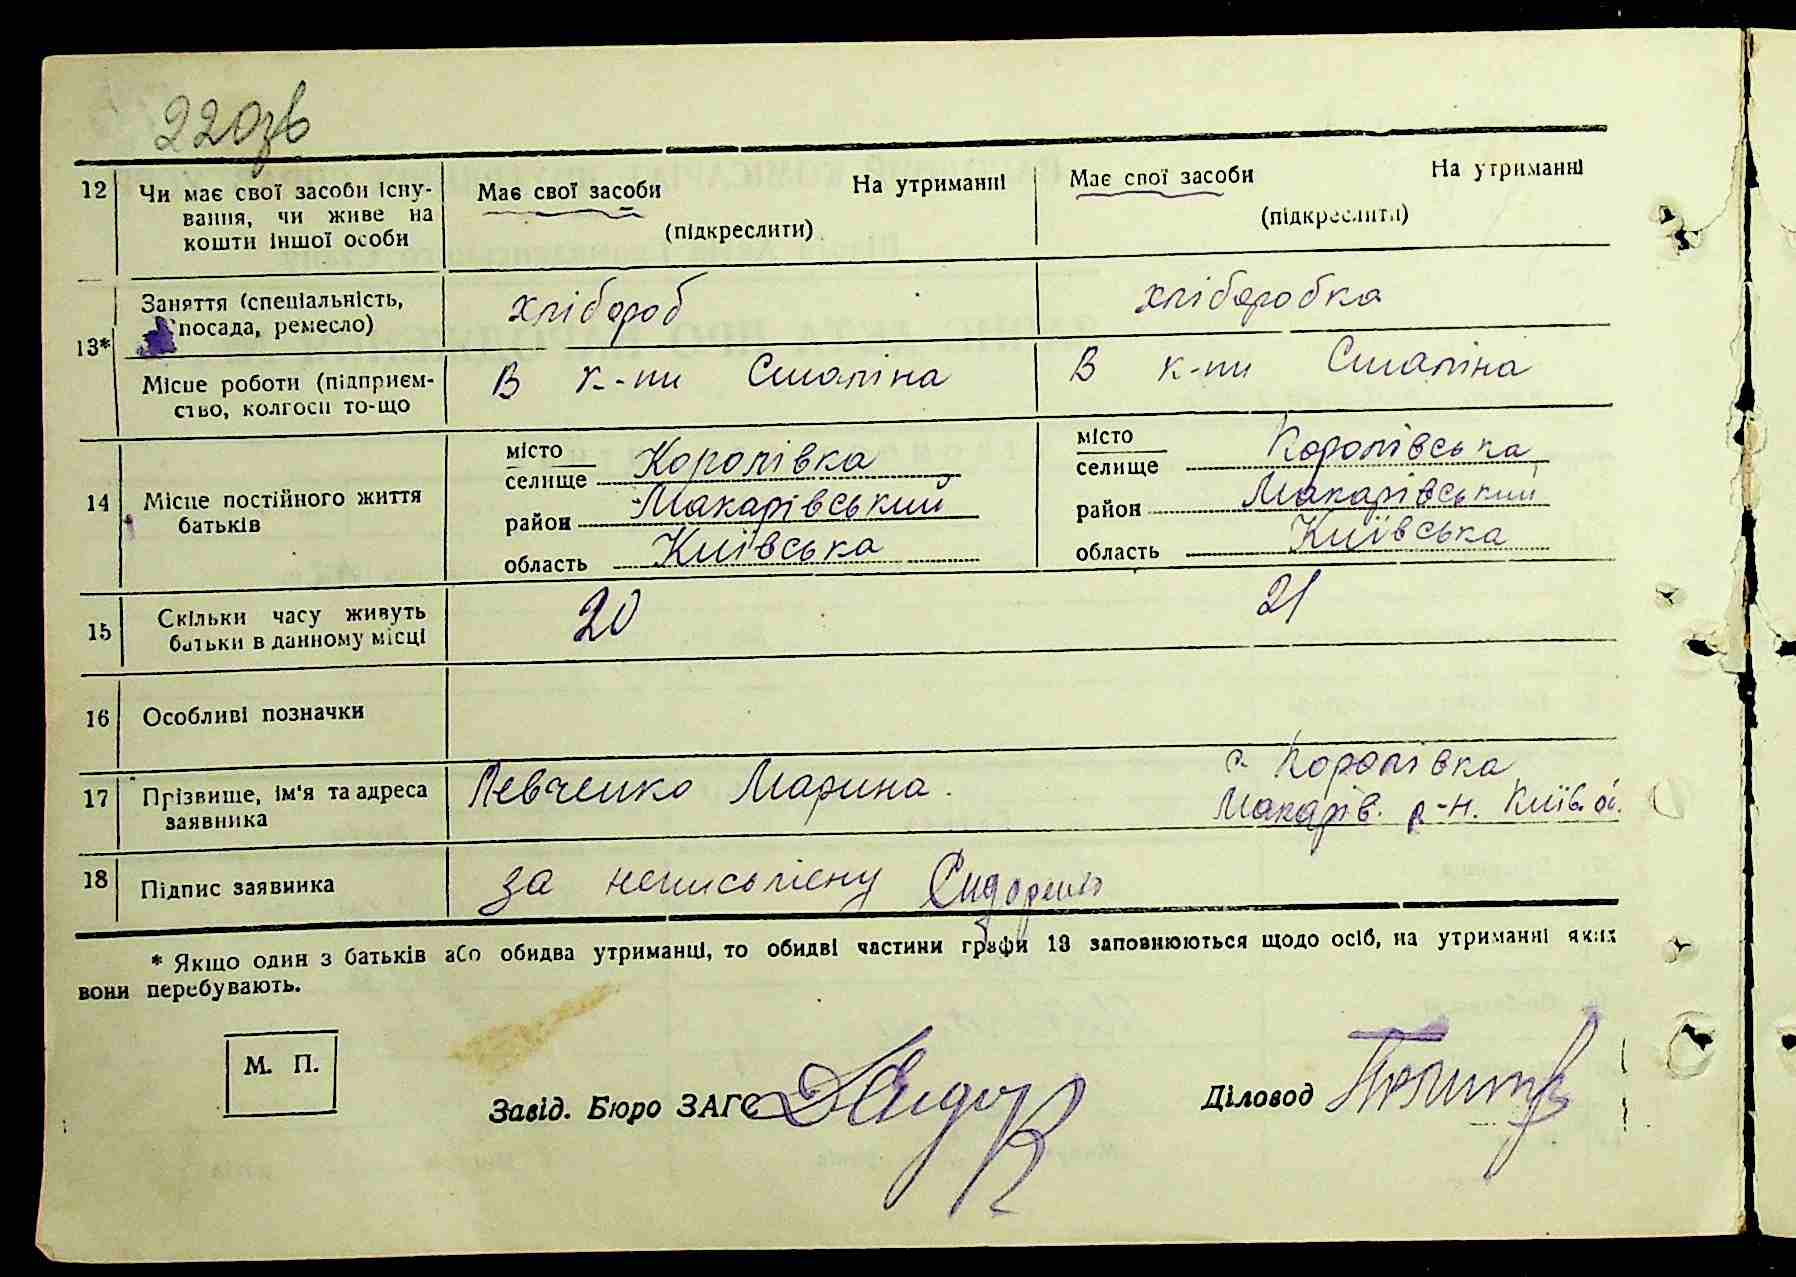 220зв
12 Чи має свої засоби існу- Має свої засоби На утриманні Має свої засоби На утриманні
вання, чи живе на (підкреслити) (підкреслити)
кошти іншої особи
13* Заняття (спеціальність, хлібороб хліборобка
посада, ремесло)
Місце роботи (підприєм- В к-пи Сталіна В к-пи Сталіна
ство, колгосп то-що
14 Місце постійного життя батьків
місто місто
селище Королівка селище Королівська
район Макарівський район Макарівський
область Київська область Київська
15 Скільки часу живуть 20 21
батьки в данному місці
16 Особливі позначки
17 Прізвище, ім'я та адреса Левченко Марина. с. Королівка
заявника Макарів. р-н. Київ. об.
18 Підпис заявника за неписьмену Сидоренко
* Якщо один з батьків або обидва утриманці, то обидві частини графи 13 заповнюються щодо осіб, на утриманні яких
вони перебувають.
М. П.
Завід. Бюро ЗАГС Діловод